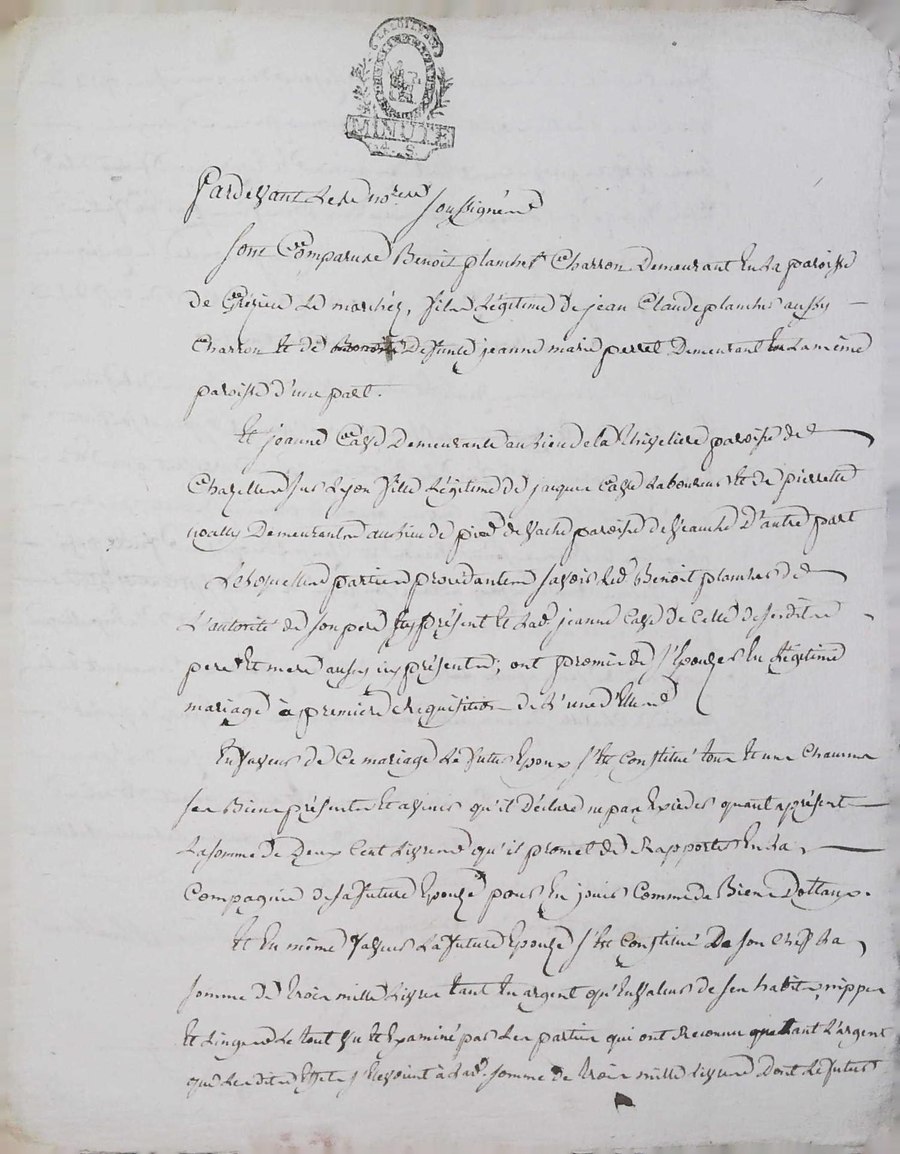 MINUTE
4. S.
Pardevant les no.res soussignés
sont Comparus Benoit planchet Charron Demeurant En la paroisse
de Grézieu Le marché, fils Légitime de jean Claude planchet aussy
Charron Et de Defunte jeanne marie perret Demeurant En La même
paroisse d'une part.
Et jeanne Caze Demeurante au Lieu de la Thiveliere paroisse de
Chazelles sur Lyon fille Légitime de jacques Caze Laboureur Et de pierrette
noally Demeurants au Lieu de de vache paroisse de Veauche D'autre part
Lesquelles parties procédantes savoir Led. Benoit planchet de
L'autorité de son pere icy présent Et Lad. jeanne Caze de Celle de sesdits
pere Et mere aussy icy présents; ont promis de s'Epouzer En Légitime
mariage à premiere Requisition de L'une d'Elles
En faveur de Ce mariage Le futur Epoux s'Est Constitué tous Et un Chacuns
ses Biens présents Et avenir qu'il Déclare ne pas Exceder quant aprésent
La somme de Deux Cent Livres qu'il promet de Rapporter En La
Compagnie de sa future Epouze pour En jouir Comme de Biens Dottaux.
Et En même faveur La future Epouze s'Est Constitué De son Chef La
somme de Trois mille Livres tant En argent qu'En valeur de ses habits, nippes
Et Linges Le tout vu Et Examiné par Les parties qui ont Reconnu que tant L'argent
que Lesdits Effets s'Elevoient à Lad. somme de Trois mille Livres Dont Le futur